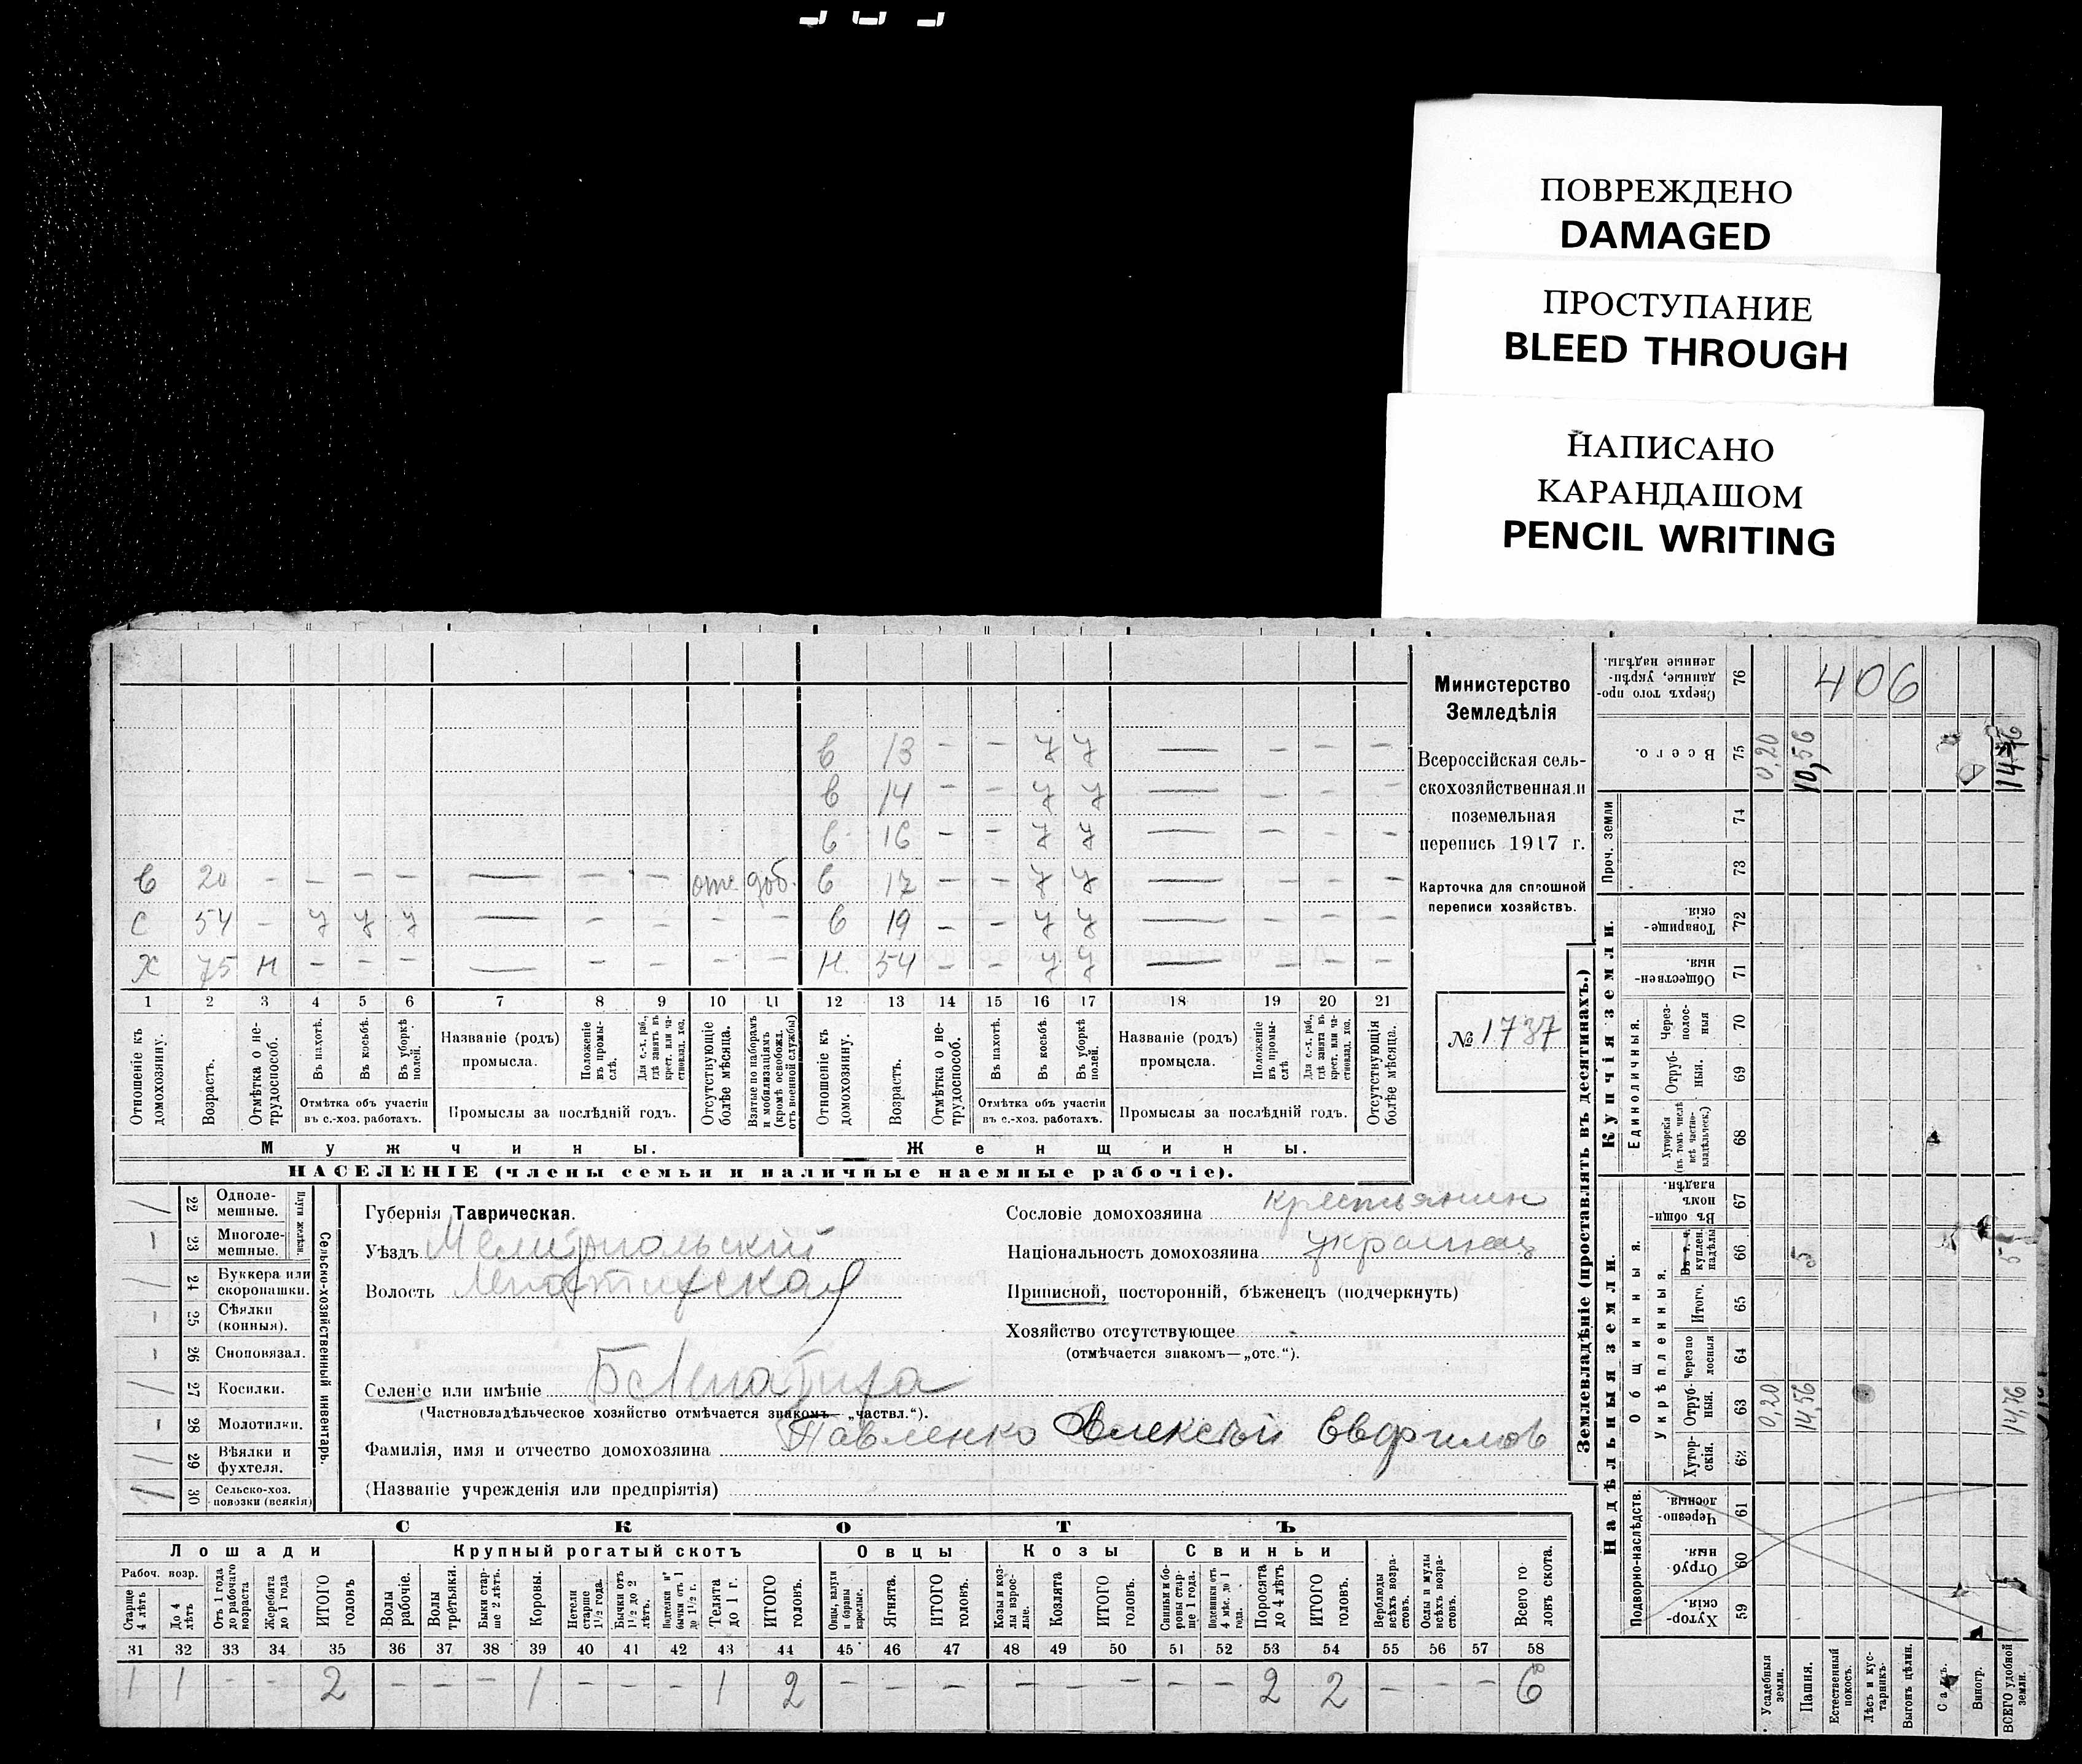 ПОВРЕЖДЕНО
DAMAGED
ПРОСТУПАНИЕ
BLEED THROUGH
НАПИСАНО
КАРАНДАШОМ
PENCIL WRITING
в 13 - - у у — - - -
в 14 - - у у — - - -
в 16 - - у у — - - -
в 20 - - - - — - - отс доб. в 17 - - у у — - - -
с 54 - у у у — - - - - в 19 - - у у — - - -
Х 75 н - - - — - - - - Н. 54 - - у у — - - -
1 2 3 4 5 6 7 8 9 10 11 12 13 14 15 16 17 18 19 20 21
Отношеніе къ домохозяину.
Возрастъ.
Отмѣтка о нетрудоспособ.
Въ пахотѣ.
Въ косьбѣ.
Въ уборкѣ полей.
Отмѣтка объ участіи
въ с.-хоз. работахъ.
Названіе (родъ)
промысла.
Положеніе въ промыслѣ.
Для с.-х. раб., гдѣ занятъ въ крест. или частновлад. хоз.
Промыслы за послѣдній годъ.
Отсутствующіе болѣе мѣсяца.
Взятые по наборамъ и мобилизаціямъ (кромѣ освобожд. отъ военной службы)
Отношеніе къ домохозяину.
Возрастъ.
Отмѣтка о нетрудоспособ.
Въ пахотѣ.
Въ косьбѣ.
Въ уборкѣ полей.
Отмѣтка объ участіи
въ с.-хоз. работахъ.
Названіе (родъ)
промысла.
Положеніе въ промыслѣ
Для с.-х. раб., гдѣ занята въ крест. или частновлад. хоз.
Промыслы за послѣдній годъ.
Отсутствующія болѣе мѣсяца.
Мужчины. Женщины.
НАСЕЛЕНІЕ (члены семьи и наличные наемные рабочіе).
Министерство
Земледѣлія
Всероссійская сель-
скохозяйственная и
поземельная
перепись 1917 г.
Карточка для сплошной
переписи хозяйствъ.
№ 1737
/ 22 Одноле-
мешные.
- 23 Многоле-
мешные.
Плуги желѣзн.
/ 24 Буккера или
скоропашки.
- 25 Сѣялки
(конныя).
- 26 Сноповязал.
/ 27 Косилки.
- 28 Молотилки.
// 29 Вѣялки и
фухтеля.
// 30 Сельско-хоз.
повозки (всякія)
Сельско-хозяйственный инвентарь.
Губернія Таврическая.
Уѣздъ Мелитопольский
Волость
Селеніе или имѣніе
(Частновладѣльческое хозяйство отмѣчается знакомъ— „частвл.“).
Фамилія, имя и отчество домохозяина Павленко Алексѣй Евфимов
(Названіе учрежденія или предпріятія)
Сословіе домохозяина крестьянин
Національность домохозяина украинец
Приписной, посторонній, бѣженецъ (подчеркнуть)
Хозяйство отсутствующее -
(отмѣчается знакомъ—„отс.“).
СКОТЪ
Лошади Крупный рогатый скотъ Овцы Козы Свиньи
Рабоч. возр.
Старше 4 лѣтъ
До 4 лѣтъ
Отъ 1 года до рабочаго возраста
Жеребята до 1 года
ИТОГО головъ
Волы рабочіе.
Волы третьяки.
Быки старше 2 лѣтъ.
Коровы.
Нетели старше 1½ года.
Бычки отъ 1½ до 2 лѣтъ.
Подтелки и бычки отъ 1 до 1½ г.
Телята до 1 г.
ИТОГО головъ.
Овцы, валухи и бараны взрослые.
Ягнята.
ИТОГО головъ.
Козы и козлы взрослые.
Козлята
ИТОГО головъ.
Свиньи и боровы старше 1 года.
Подсвинки отъ 4 мѣс. до 1 года.
Поросята до 4 лѣтъ
ИТОГО головъ.
Верблюды всѣхъ возрастовъ.
Ослы и мулы всѣхъ возрастовъ.
Всего головъ скота.
31 32 33 34 35 36 37 38 39 40 41 42 43 44 45 46 47 48 49 50 51 52 53 54 55 56 57 58
1 1 - - 2 - - - 1 - - - 1 2 - - - - - - - - 2 2 - - - 6
Землевладѣніе (проставлять въ десятинахъ.)
Надѣльныя земли. Купчія земли.
Подворно-наслѣдств. Общинныя. Укрѣпленныя. Единоличныя. Проч. земли
Хуторскія. 59
Отрубныя. 60
Черезполосныя. 61
Хуторскія. 62
Отрубныя. 63 0,20 14,56 14,76
Черезполосныя 64
Итого. 65
Въ т. ч. куплен. надѣлы 66 5 5
Въ общинномъ владѣн. 67
Хуторскія (въ томъ числѣ всѣ частновладѣльческ.) 68
Отрубныя. 69
Черезполосныя 70
Общественныя. 71
Товарищескія. 72
73
74
Всего. 75 0,20 10,56 14,76
Сверхъ того проданные, укрѣпленные надѣлы. 76
406
Усадебныя земли.
Пашня.
Естественный покосъ.
Лѣсъ и кустарникъ.
Выгонъ цѣлин.
Садъ.
Виногр.
ВСЕГО удобной земли.